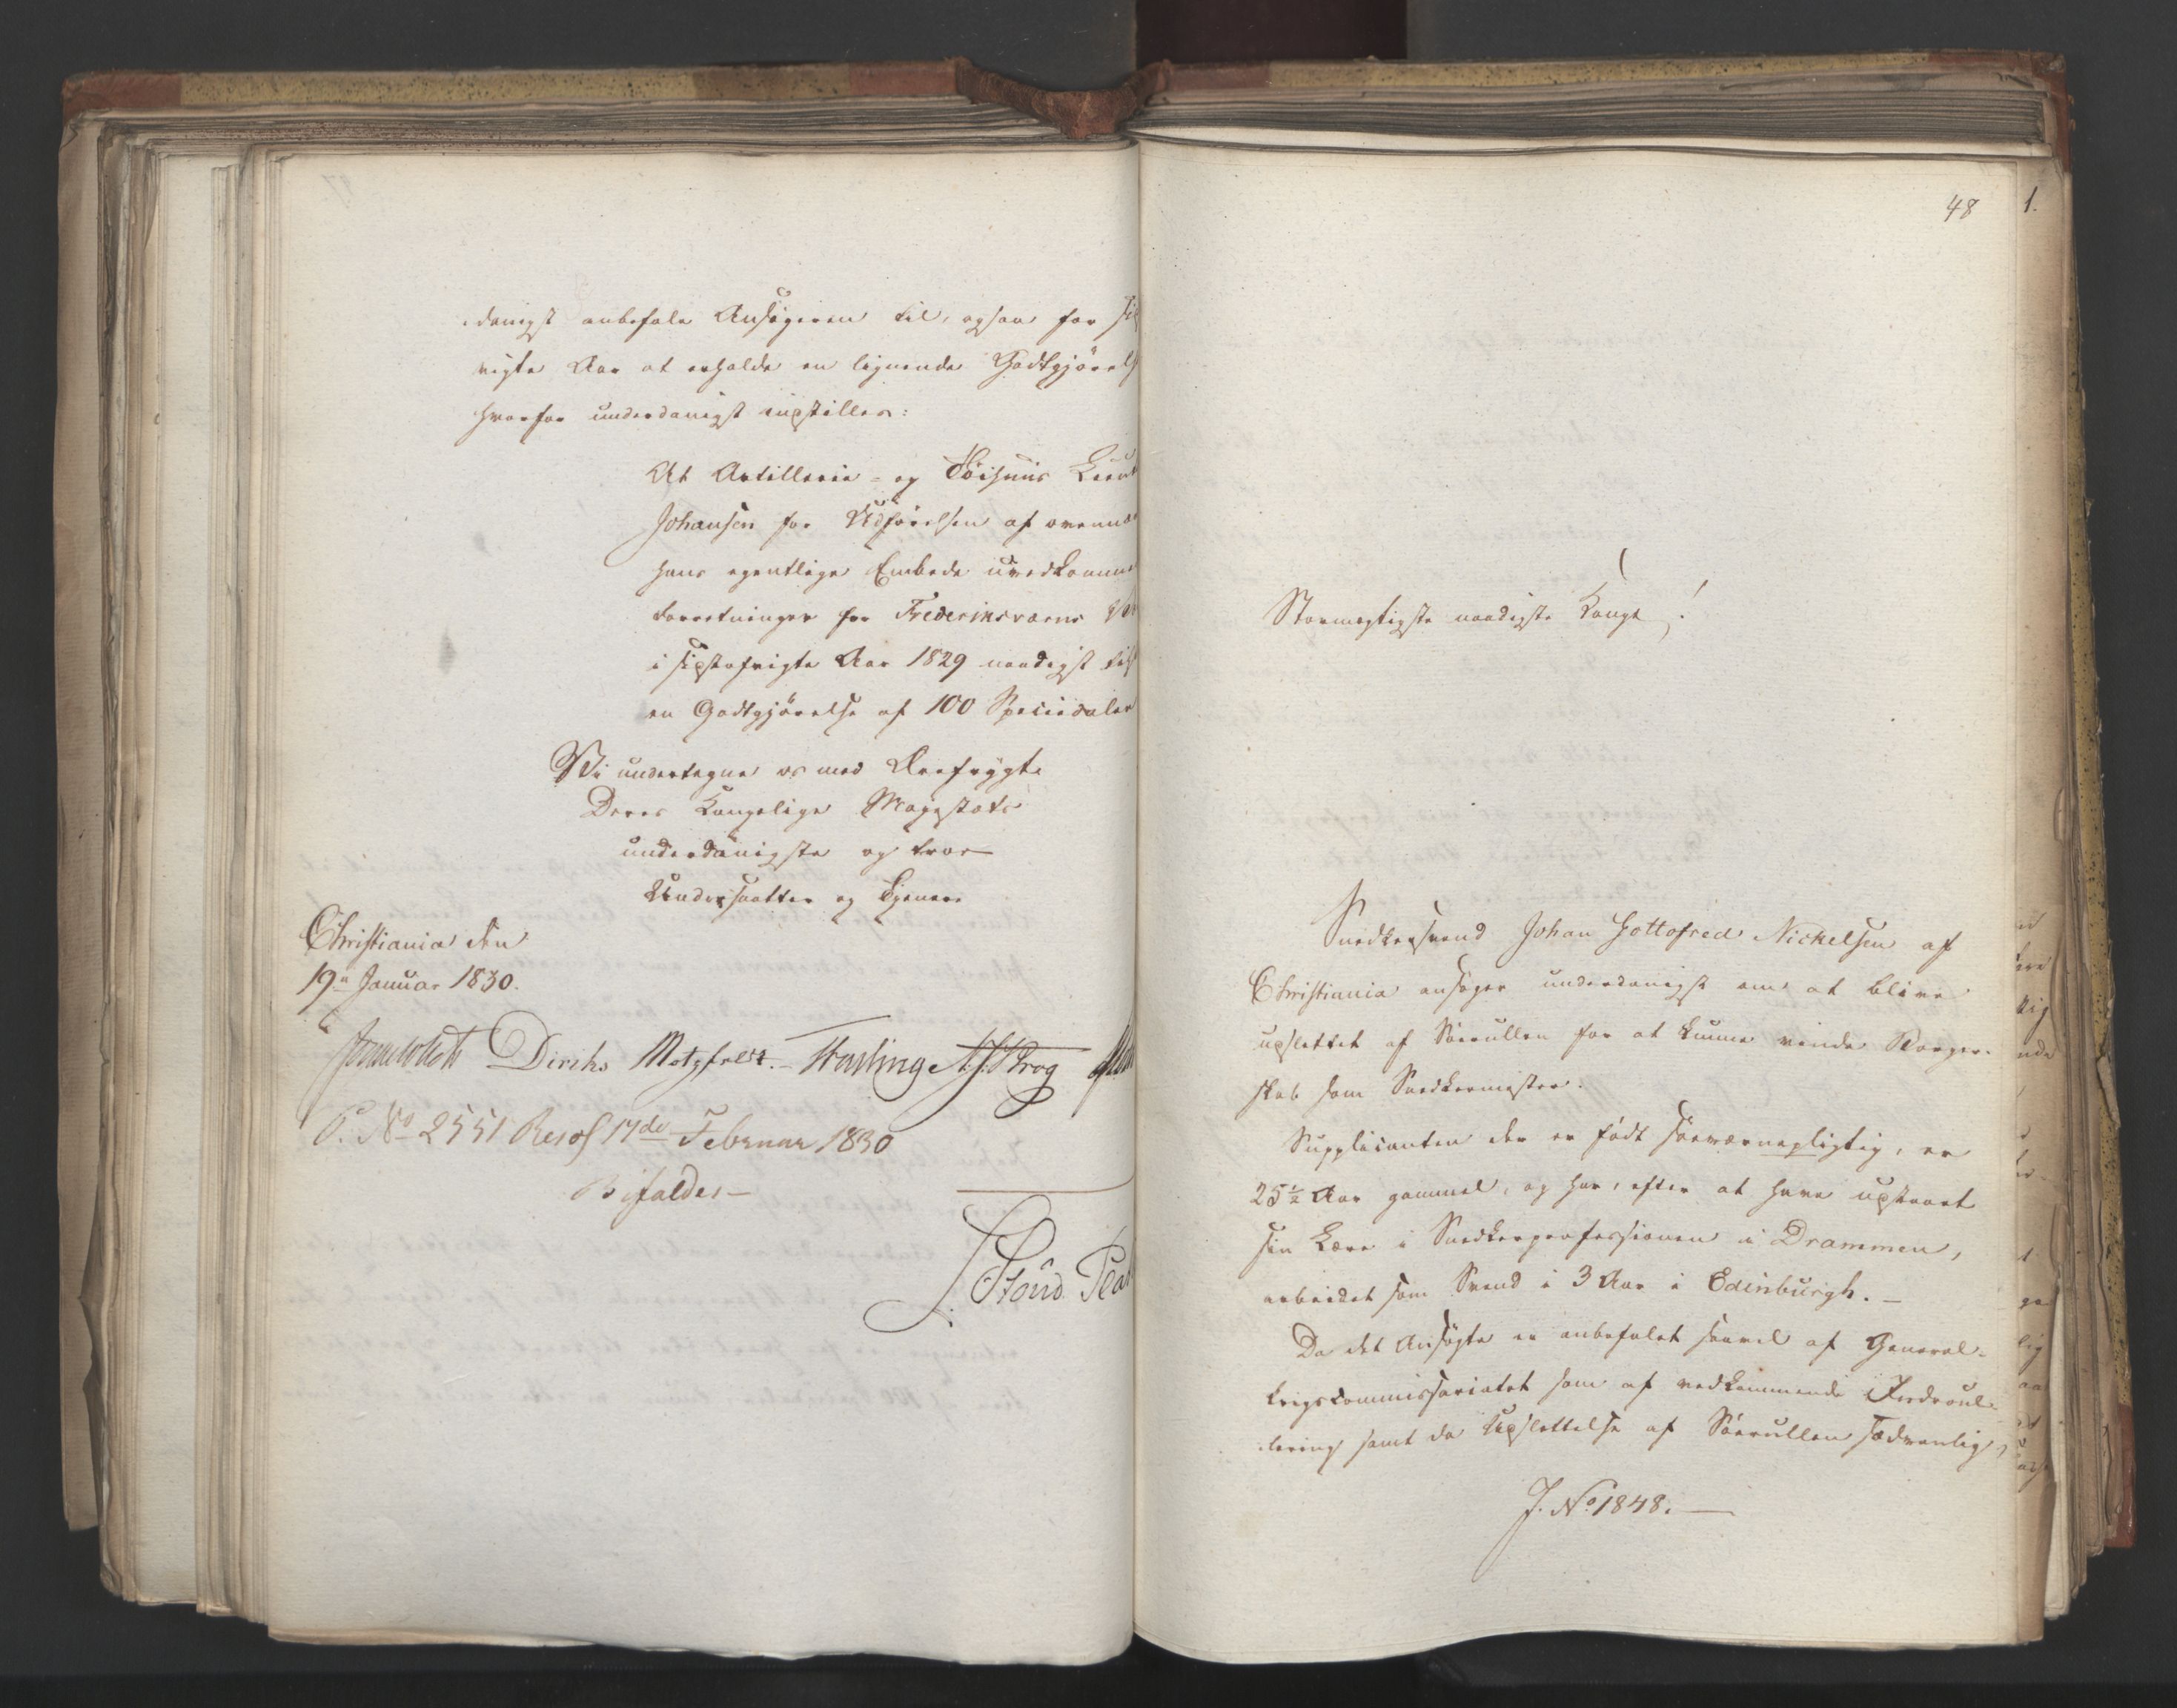 -danigst anbefale Ansøgeren til, ogsaa for sidst-
vigte Aar at erholde en lignende Godtgjörelse
hvorfor underdanigst indstilles:
At Artillerie- og Töihuus Lieut
Johansen for Udförelsen af ovennæ
hans egentlige Embede uvedkomme
Forretninger for Frederiksværns
i sidstafvigte Aar 1829 naadigst tilst
en Godtgjörelse af 100 Speciedaler
Vi undertegne os med Ærefrygt
Deres Kongelige Majestæts
underdanigste og troe
Undersaatter og Tjenere
Christiania den
19de Januar 1830.
Diriks Motzfeldt. Fasting N. J. Krog
P. No 2551 Resol 17de Februar 1830
Bifaldes
48
1.
Stormægtigste naadigste Konge!
Snedkersvend Johan Gottofred Nickelsen af
Christiania ansøger underdanigst om at blive
udslettet af Söerullen for at kunne vinde Borger-
skab som Snedkermester.
Supplicanten der er født söeværnepligtig, er
25½ Aar gammel, og har, efter at have udstaaet
sin Lære i Snedkerprofessionen i Drammen,
arbeidet som Svend i 3 Aar i Edinburgh.
Da det Ansøgte er anbefalet saavel af General-
krigscommissariatet som af vedkommende Indroul-
lering samt da Udslettelse af Söerullen sædvanlig,
J. No 1848.